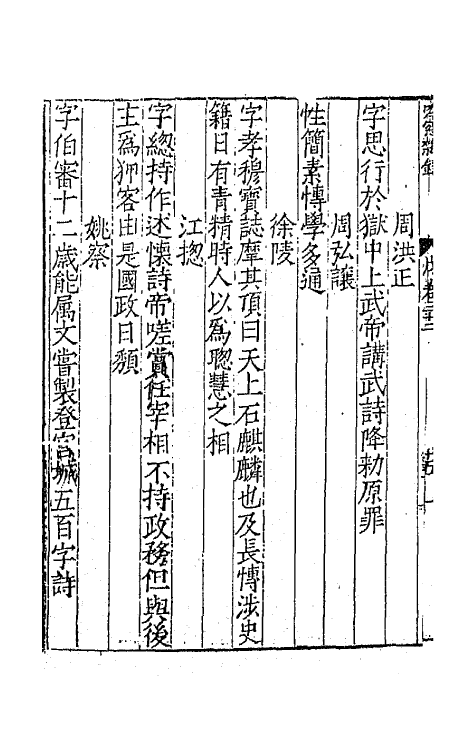 周洪正
字思行於獄中上武帝講武詩降勑原罪
周弘讓
性簡素愽學多通
徐陵
字孝穆寶誌摩其頂曰天上石麒麟也及長愽涉史
籍目有青精時人以為聰慧之相
江揔
字緫持作述懷詩帝嗟賞任宰相不持政務但與後
主為狎客由是國政日頽
姚察
字伯審十二歳能属文嘗製登宫城五百字詩